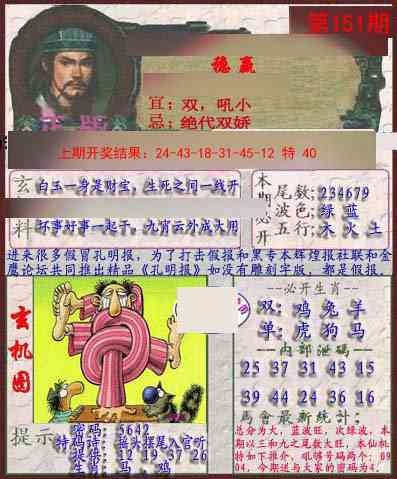 第151期
稳赢
宜：双，吼小
忌：绝代双娇
上期开奖结果：24-43-18-31-45-12 特 40
玄
白玉一身是财宝，生死之间一线开
料
坏事好事一起干。九宵云外成大用
本期必开
尾数：234679
波色：绿 蓝
五行：木 火 土
进来很多假冒孔明报，为了打击假报和黑专本辉煌报社联和金
鹰论坛共同推出精品《孔明报》如没有雕刻字版，都是假报．
玄机图
必开生肖
双：鸡 兔 羊
单：虎 狗 马
内部泄码
25 37 31 43 15
39 44 24 36 16
馬會最新统计：
总分为大，蓝波旺，次绿波，本
期以三和九之尾数大旺，本仙机
特如下推介，吼够号码两个：09
04，今期送与大家的密码为4．
提示
密码：5642
特码诗：摇头摆尾入官听
提供：12 19 37 26
生肖：马．鸡